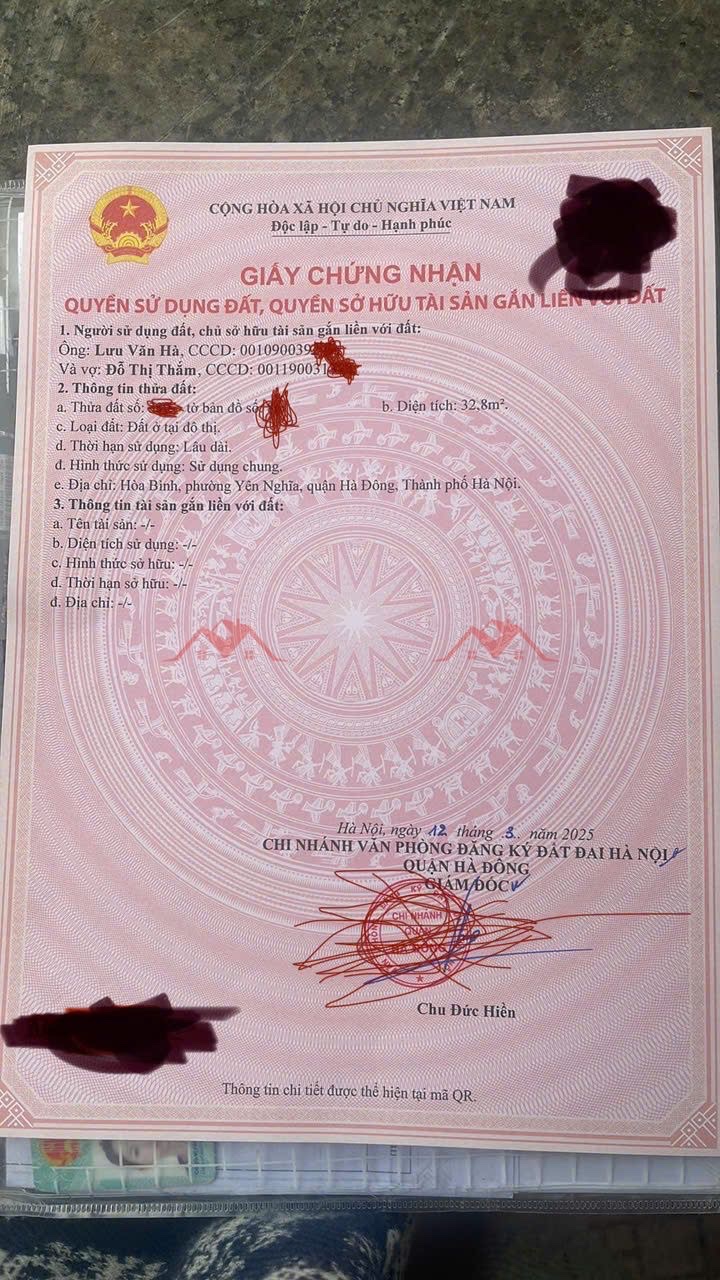 CỘNG HÒA XÃ HỘI CHỦ NGHĨA VIỆT NAM
Độc lập - Tự do - Hạnh phúc
GIẤY CHỨNG NHẬN
QUYỀN SỬ DỤNG ĐẤT, QUYỀN SỞ HỮU TÀI SẢN GẮN LIỀN VỚI ĐẤT
1. Người sử dụng đất, chủ sở hữu tài sản gắn liền với đất:
Ông: Lưu Văn Hà, CCCD: 001090039
Và vợ: Đỗ Thị Thắm, CCCD: 00119003
2. Thông tin thửa đất:
a. Thửa đất số: tờ bản đồ số b. Diện tích: 32,8m².
c. Loại đất: Đất ở tại đô thị.
d. Thời hạn sử dụng: Lâu dài.
đ. Hình thức sử dụng: Sử dụng chung.
e. Địa chỉ: Hòa Bình, phường Yên Nghĩa, quận Hà Đông, Thành phố Hà Nội.
3. Thông tin tài sản gắn liền với đất:
a. Tên tài sản: -/-
b. Diện tích sử dụng: -/-
c. Hình thức sở hữu: -/-
d. Thời hạn sở hữu: -/-
đ. Địa chỉ: -/-
Hà Nội, ngày 12 tháng 3. năm 2025
CHI NHÁNH VĂN PHÒNG ĐĂNG KÝ ĐẤT ĐAI HÀ NỘI
QUẬN HÀ ĐÔNG
GIÁM ĐỐC
CHI NHÁNH
QUẬN
Chu Đức Hiền
Thông tin chi tiết được thể hiện tại mã QR.